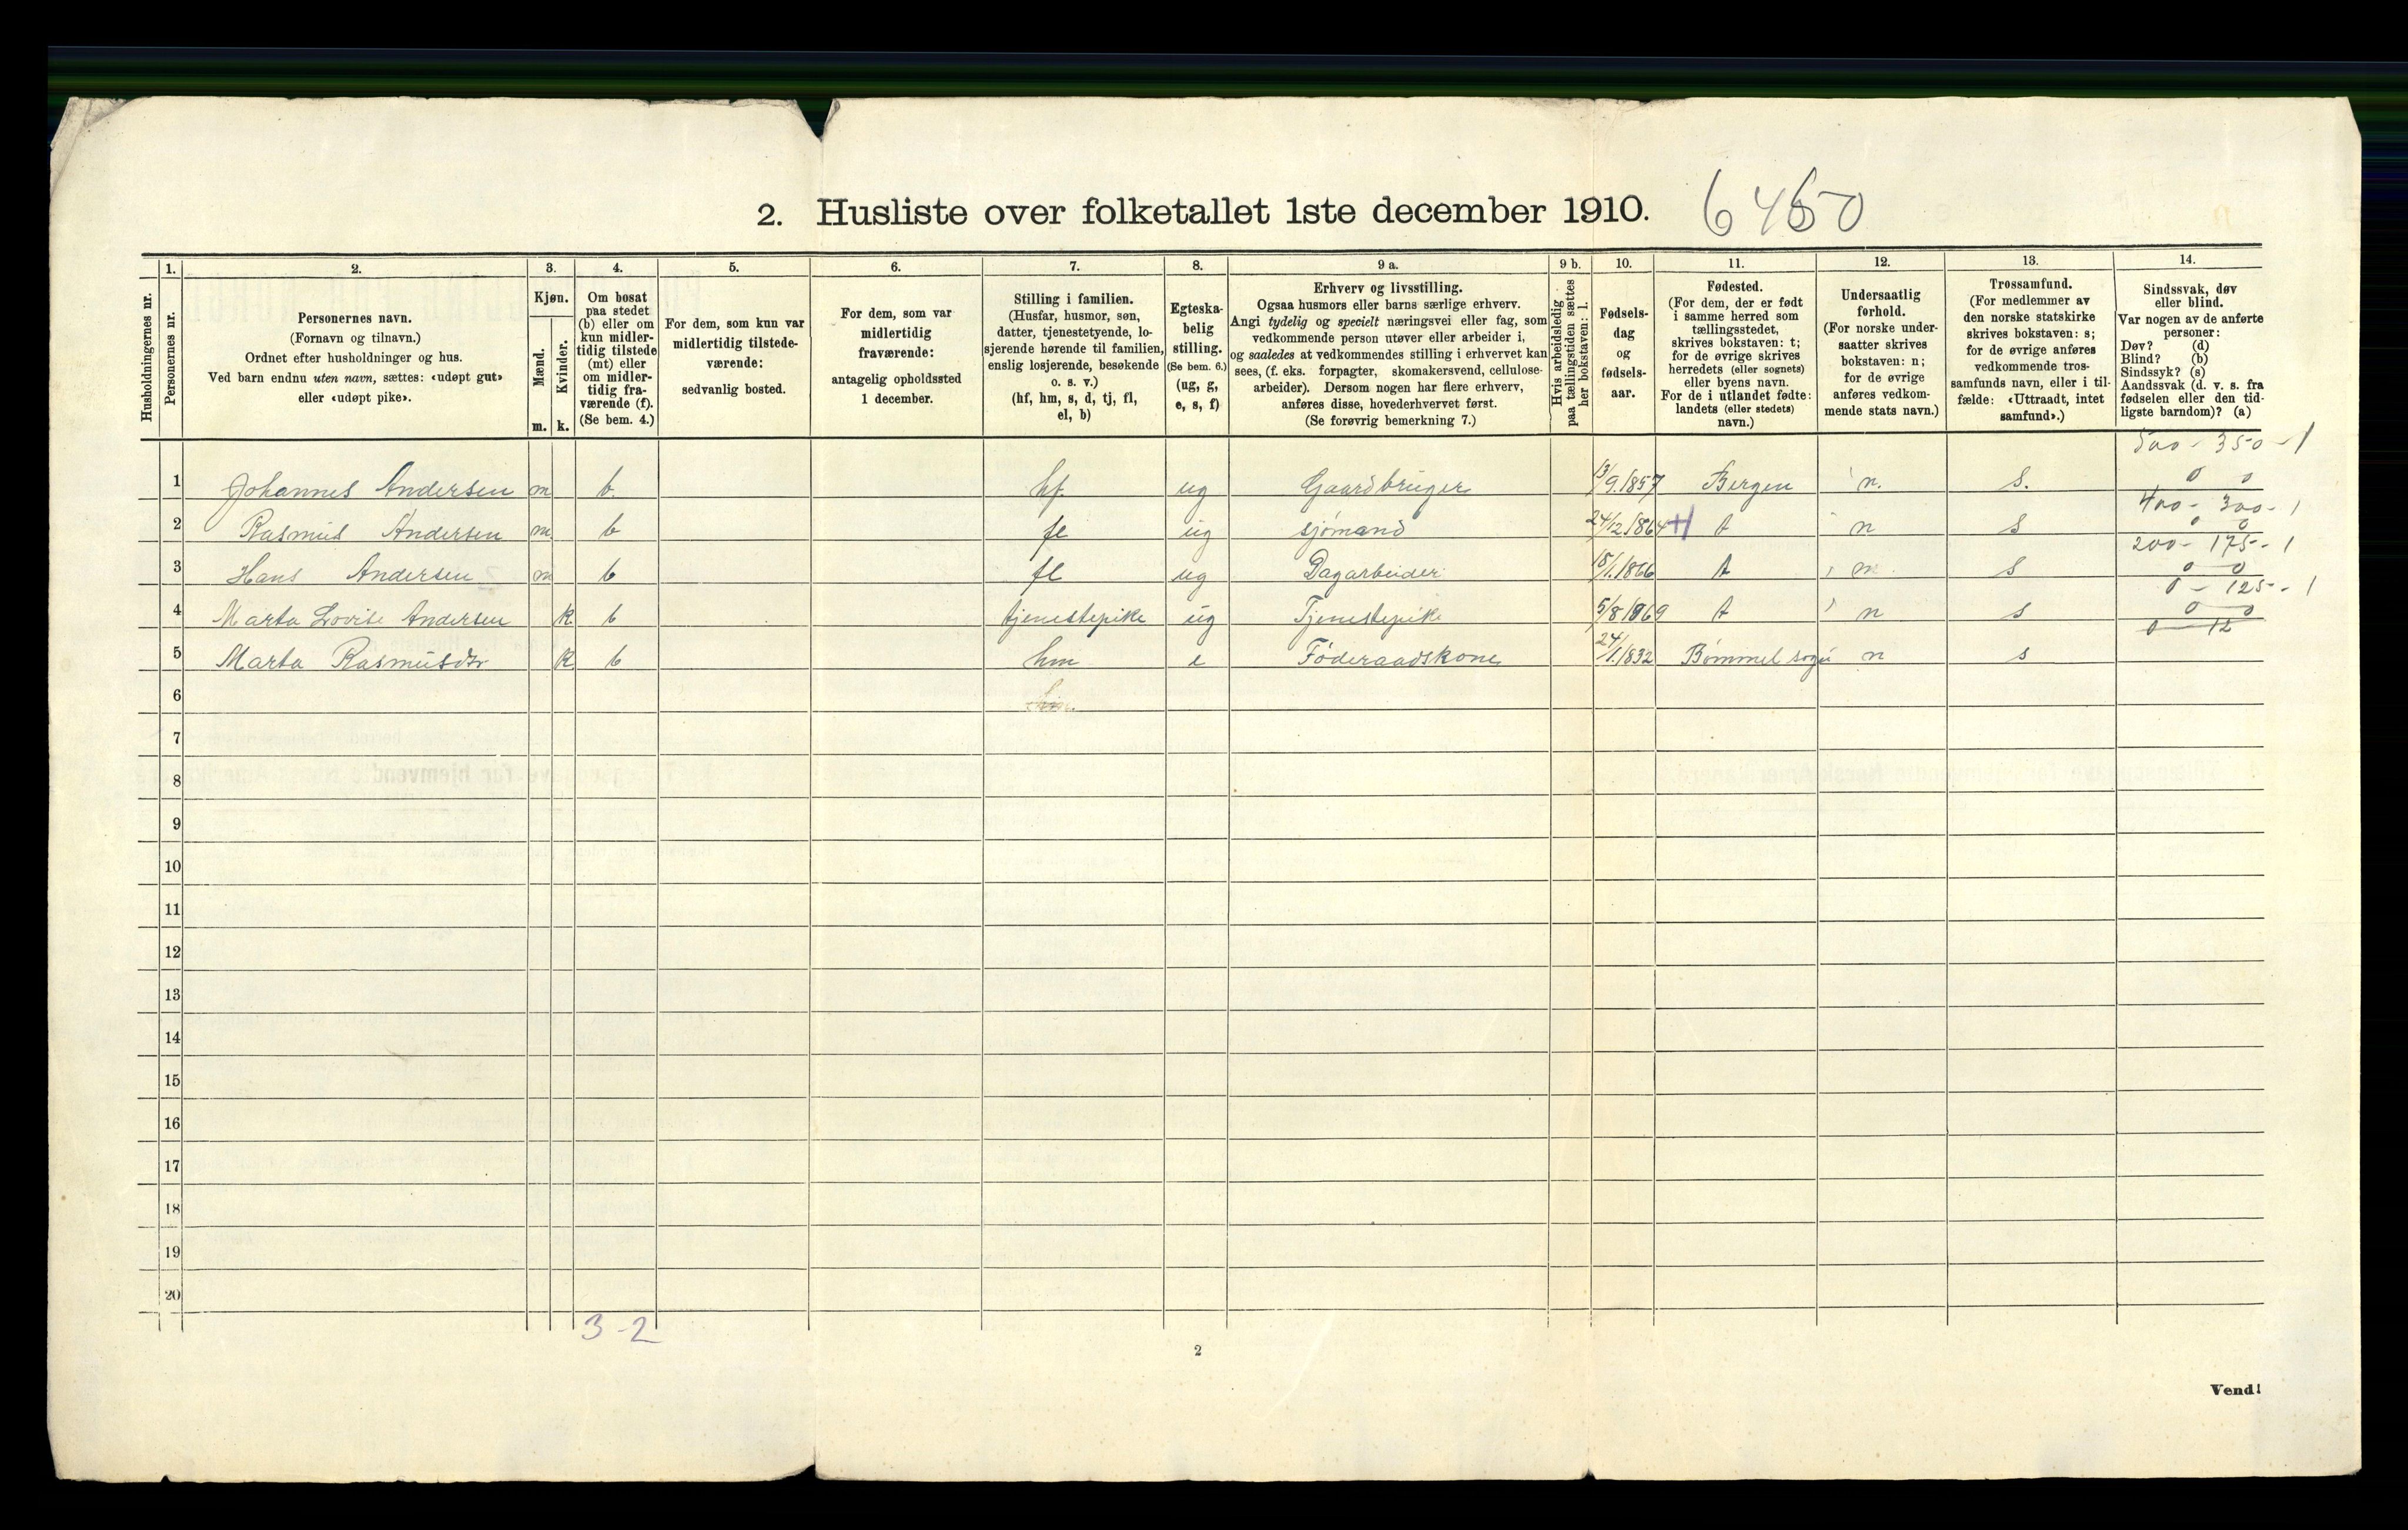 2. Husliste over folketallet 1ste december 1910. 6450
Husholdningernes nr.
1.
Personernes nr.
2.
Personernes navn.
(Fornavn og tilnavn.)
Ordnet efter husholdninger og hus.
Ved barn endnu uten navn, sættes: «udøpt gut»
eller «udøpt pike».
3.
Kjøn.
Mænd.
Kvinder.
m. k.
4.
Om bosat
paa stedet
(b) eller om
kun midler-
tidig tilstede
(mt) eller
om midler-
tidig fra-
værende (f).
(Se bem. 4.)
5.
For dem, som kun var
midlertidig tilstede-
værende:
sedvanlig bosted.
6.
For dem, som var
midlertidig
fraværende:
antagelig opholdssted
1 december.
7.
Stilling i familien.
(Husfar, husmor, søn,
datter, tjenestetyende, lo-
sjerende hørende til familien,
enslig losjerende, besøkende
o. s. v.)
(hf, hm, s, d, tj, fl,
el, b)
8.
Egteska-
belig
stilling.
(Se bem. 6.)
(ug, g,
e, s, f)
9 a.
Erhverv og livsstilling.
Ogsaa husmors eller barns særlige erhverv.
Angi tydelig og specielt næringsvei eller fag, som
vedkommende person utøver eller arbeider i,
og saaledes at vedkommendes stilling i erhvervet kan
sees, (f. eks. forpagter, skomakersvend, cellulose-
arbeider). Dersom nogen har flere erhverv,
anføres disse, hovederhvervet først.
(Se forøvrig bemerkning 7.)
9 b.
Hvis arbeidsledig
paa tællingstiden sættes
her bokstaven: l.
10.
Fødsels-
dag
og
fødsels-
aar.
11.
Fødested.
(For dem, der er født
i samme herred som
tællingsstedet,
skrives bokstaven: t;
for de øvrige skrives
herredets (eller sognets)
eller byens navn.
For de i utlandet fødte:
landets (eller stedets)
navn.)
12.
Undersaatlig
forhold.
(For norske under-
saatter skrives
bokstaven: n;
for de øvrige
anføres vedkom-
mende stats navn.)
13.
Trossamfund.
(For medlemmer av
den norske statskirke
skrives bokstaven: s;
for de øvrige anføres
vedkommende tros-
samfunds navn, eller i til-
fælde: «Uttraadt, intet
samfund».)
14.
Sindssvak, døv
eller blind.
Var nogen av de anførte
personer:
Døv? (d)
Blind? (b)
Sindssyk? (s)
Aandssvak (d. v. s. fra
fødselen eller den tid-
ligste barndom)? (a)
500 - 350 - 1
1 Johannes Andersen m b. hf. ug Gaardbruger 13/9.1857 Bergen n. s. 0 0
400 - 300 - 1
2 Rasmus Andersen m b fl ug sjømand 24/12.1864 t n s 0 0
200 - 175 - 1
3 Hans Andersen m b fl ug Dagarbeider 15/1.1866 t n s 0 0
0 - 125 - 1
4 Marta Lovise Andersen k b tjenestepike ug Tjenestepike 5/8 1869 t n s 0 0
0 12
5 Marta Rasmusdtr k b hm e Føderaadskone 24/1.1832 Bømmel sogn n s
6
7
8
9
10
11
12
13
14
15
16
17
18
19
20
3-2
2
Vend!